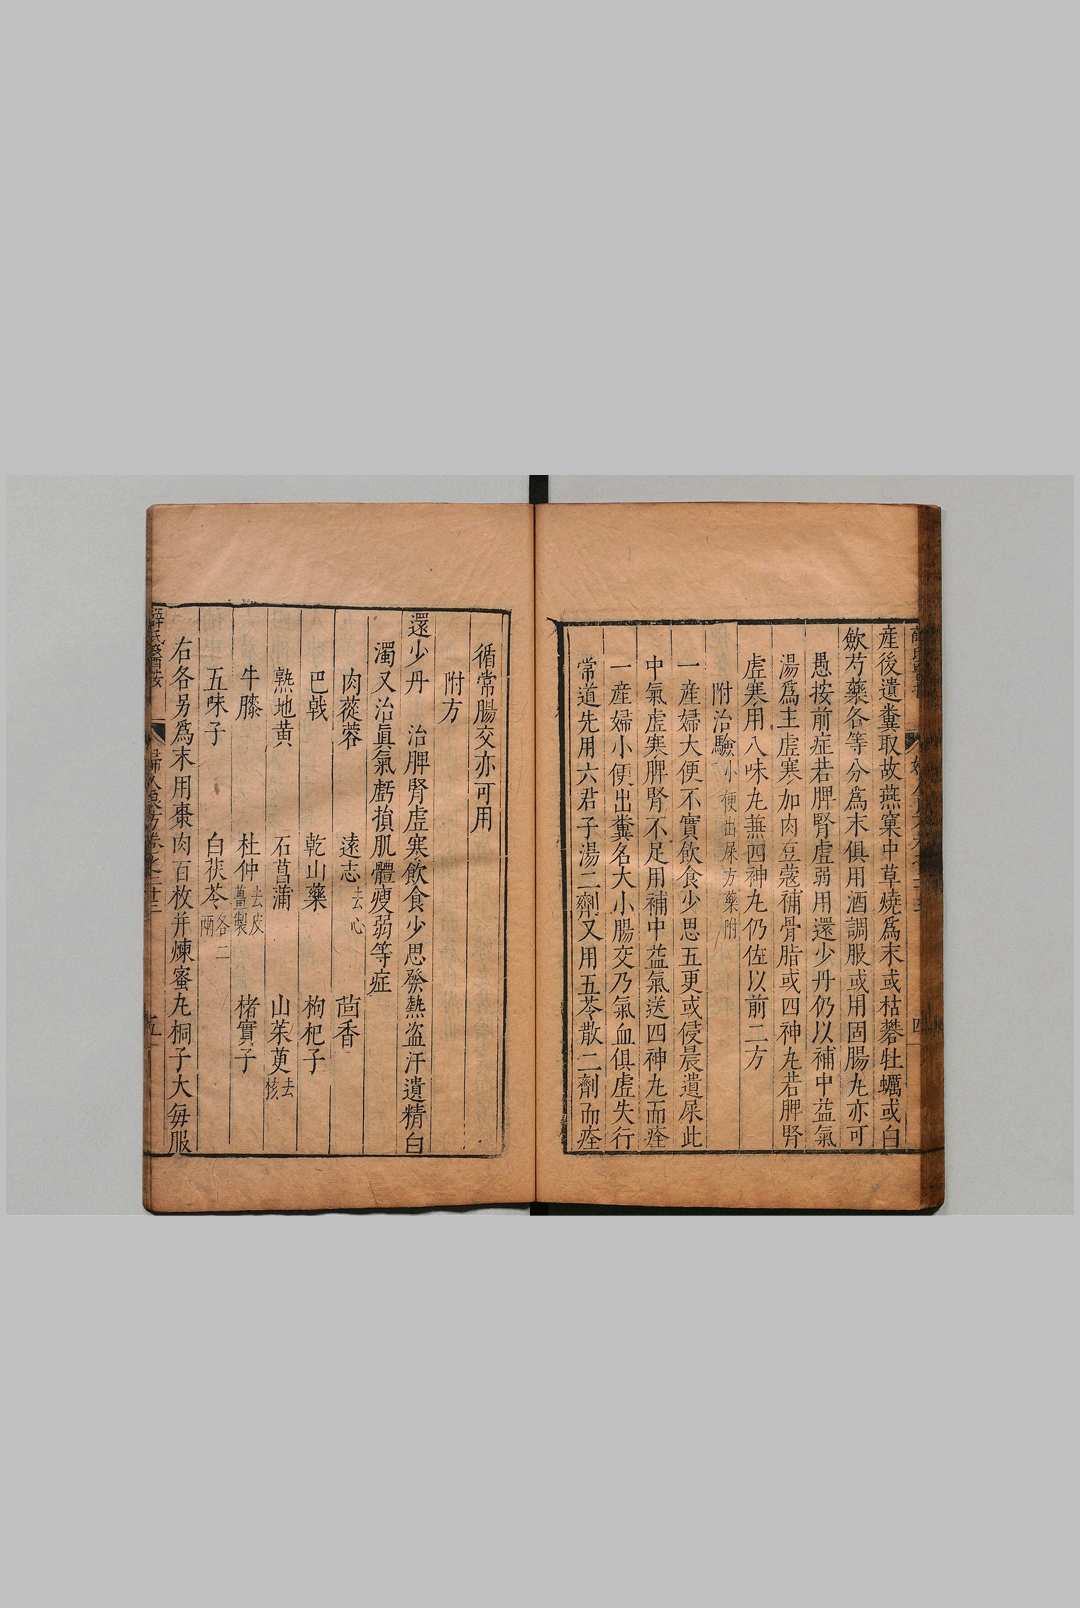 産後遺糞取故燕窠中草燒爲末或枯礬牡蠣或白
歛芍藥各等分爲末俱用酒調服或用固腸丸亦可
愚按前症若脾腎虛弱用還少丹仍以補中益氣
湯爲主虛寒加肉豆蔻補骨脂或四神丸若脾腎
虛寒用八味丸兼四神丸仍佐以前二方
附治驗小便出屎方藥附
一産婦大便不實飲食少思五更或侵晨遺屎此
中氣虛寒脾腎不足用補中益氣送四神丸而痊
一産婦小便出糞名大小腸交乃氣血俱虛失行
常道先用六君子湯二劑又用五苓散二劑而痊
循常腸交亦可用
附方
還少丹 治脾腎虛寒飲食少思發熱盗汗遺精白
濁又治眞氣虧損肌體瘦弱等症
肉蓯蓉 遠志去心 茴香
巴戟 乾山藥 枸杞子
熟地黄 石菖蒲 山茱萸去核
牛膝 杜仲去皮薑製 楮實子
五味子 白茯苓各二兩
右各另爲末用棗肉百枚并煉蜜丸桐子大每服
薛氏醫按 婦人良方卷之二十三 五